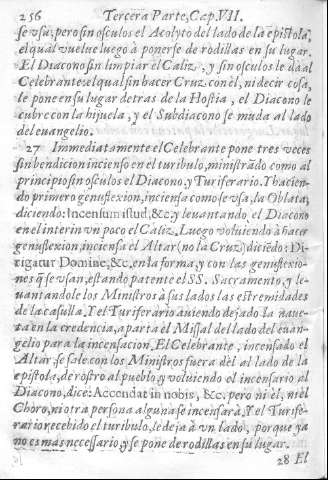 256 Tercera Parte, Cap. VII.
se vsa; pero sin osculos el Acolyto del lado de la epistola,
el qual vuelue luego à ponerse de rodillas en su lugar.
El Diacono sin limpiar el Caliz, y sin osculos le da al
Celebrante: el qual sin hacer Cruz con èl, ni decir cosa,
le pone en su lugar detras de la Hostia, el Diacono le
cubre con la hijuela, y el Subdiacono se muda al lado
del euangelio.
27 Immediatamente el Celebrante pone tres veces
sin bendicion incienso en el turibulo, ministrãdo como al
principio sin osculos el Diacono, y Turiferario. Y hacien-
do primero genuflexion, inciensa como se vsa, la Oblata,
diciendo: Incensum istud, &c. y leuantando el Diacono
en el interin vn poco el Caliz. Luego voluiendo à hacer
genuflexion, inciensa el Altar (no la Cruz) diciẽdo: Di-
rigatur Domine, &c. en la forma, y con las genuflexio-
nes q̃ se vsan, estando patente el SS. Sacramento, y le-
uantandole los Ministros à sus lados las estremidades
de la casulla. Y el Turiferario auiendo dejado la naue-
ta en la credencia, aparta el Missal del lado del euan-
gelio para la incensacion. El Celebrante, incensado el
Altar, se sale con los Ministros fuera dèl al lado de la
epistola, de rostro al pueblo, y voluiendo el incensario al
Diacono, dice: Accendat in nobis, &c. pero ni èl, ni el
Choro, ni otra persona alguna se incensarà. Y el Turife-
rario recebido el turibulo, le deja à vn lado, porque ya
no es mas necessario, y se pone de rodillas en su lugar.
28 El